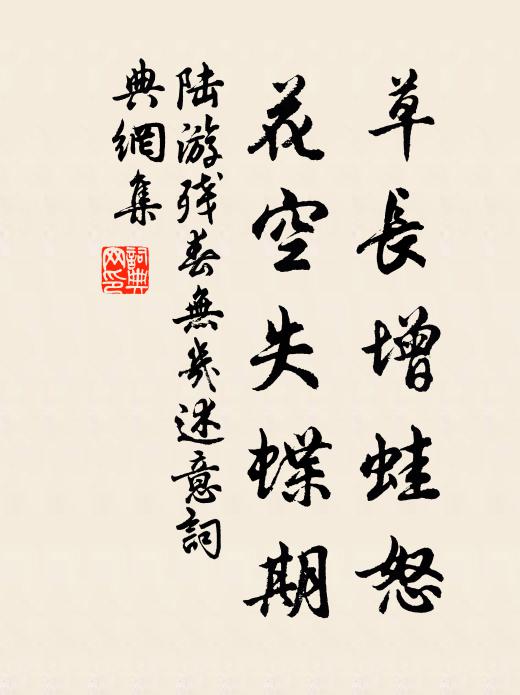 草長增蛙怒
花空失蝶期
陆游残春無几述意詞
典網集
詞典
网印